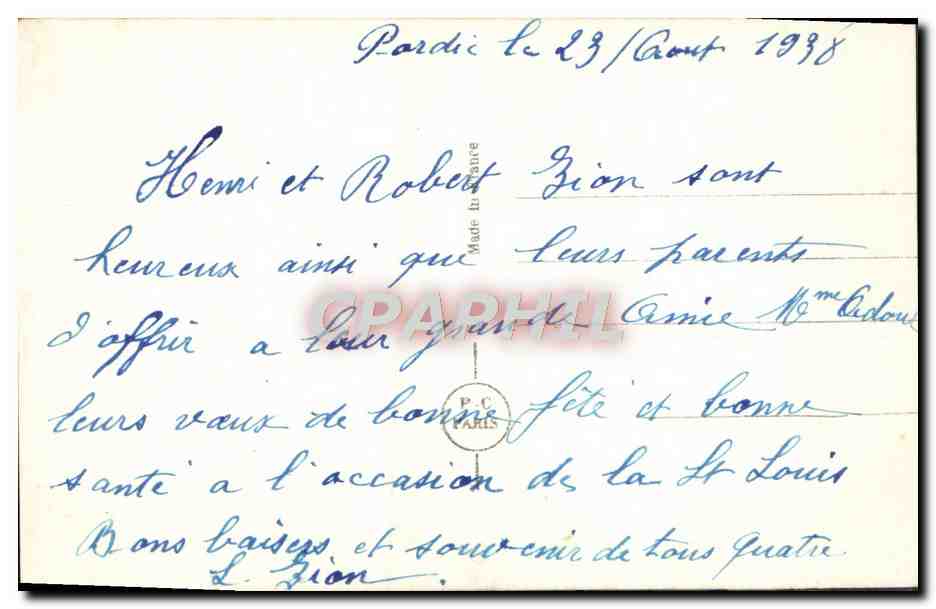 Pordic le 23/Aout 1938
Henri et Robert Zion sont
heureux ainsi que leurs parents
d'offrir a leur grande Amie Mme
leurs vœux de bonne fête et bonne
santé a l'occasion de la St Louis
Bons baisers et souvenir de tous quatre
L. Zion.
Made in France
P-C
PARIS
CPAPHIL